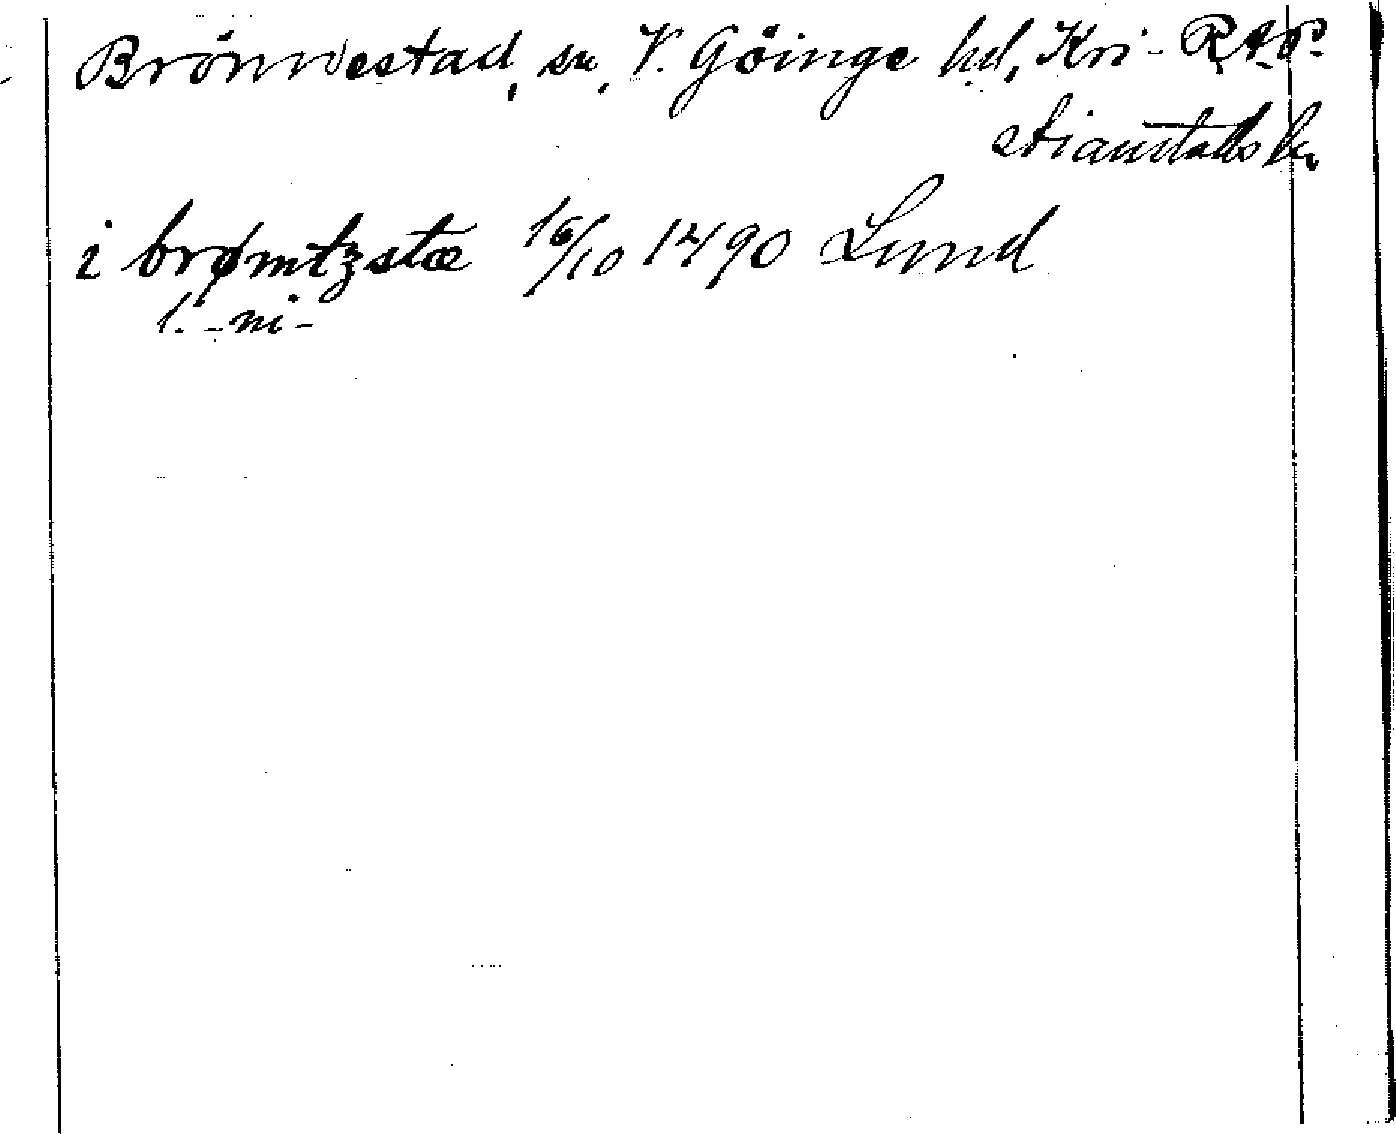 Brönnestad, sn, V. Göinge hd, Kri- RAp.
stianstads län
i brømtzstæ 16/10 1490 Lund
l. -ni-